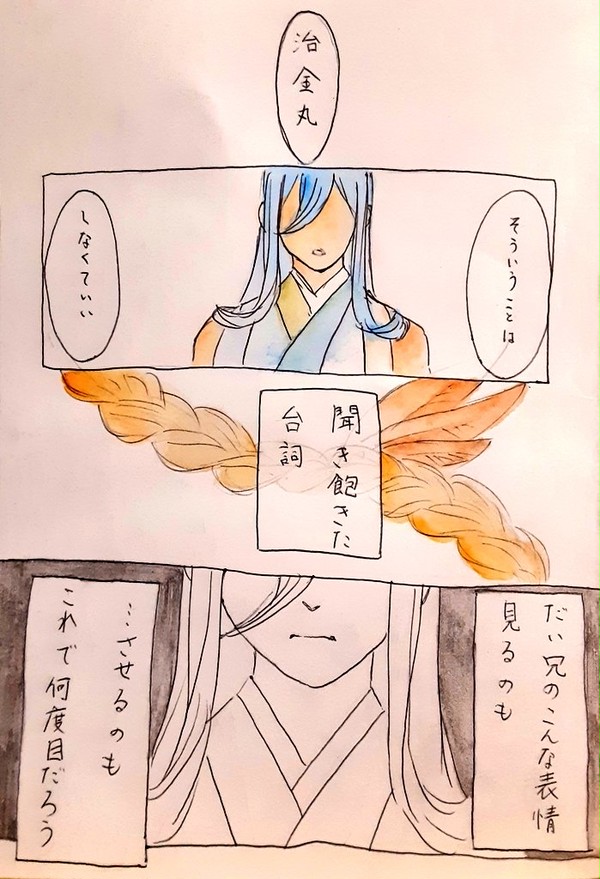 治金丸
そういうことは
しなくていい
聞き飽きた
台詞
だい兄のこんな表情
見るのも
…させるのも
これで何度目だろう